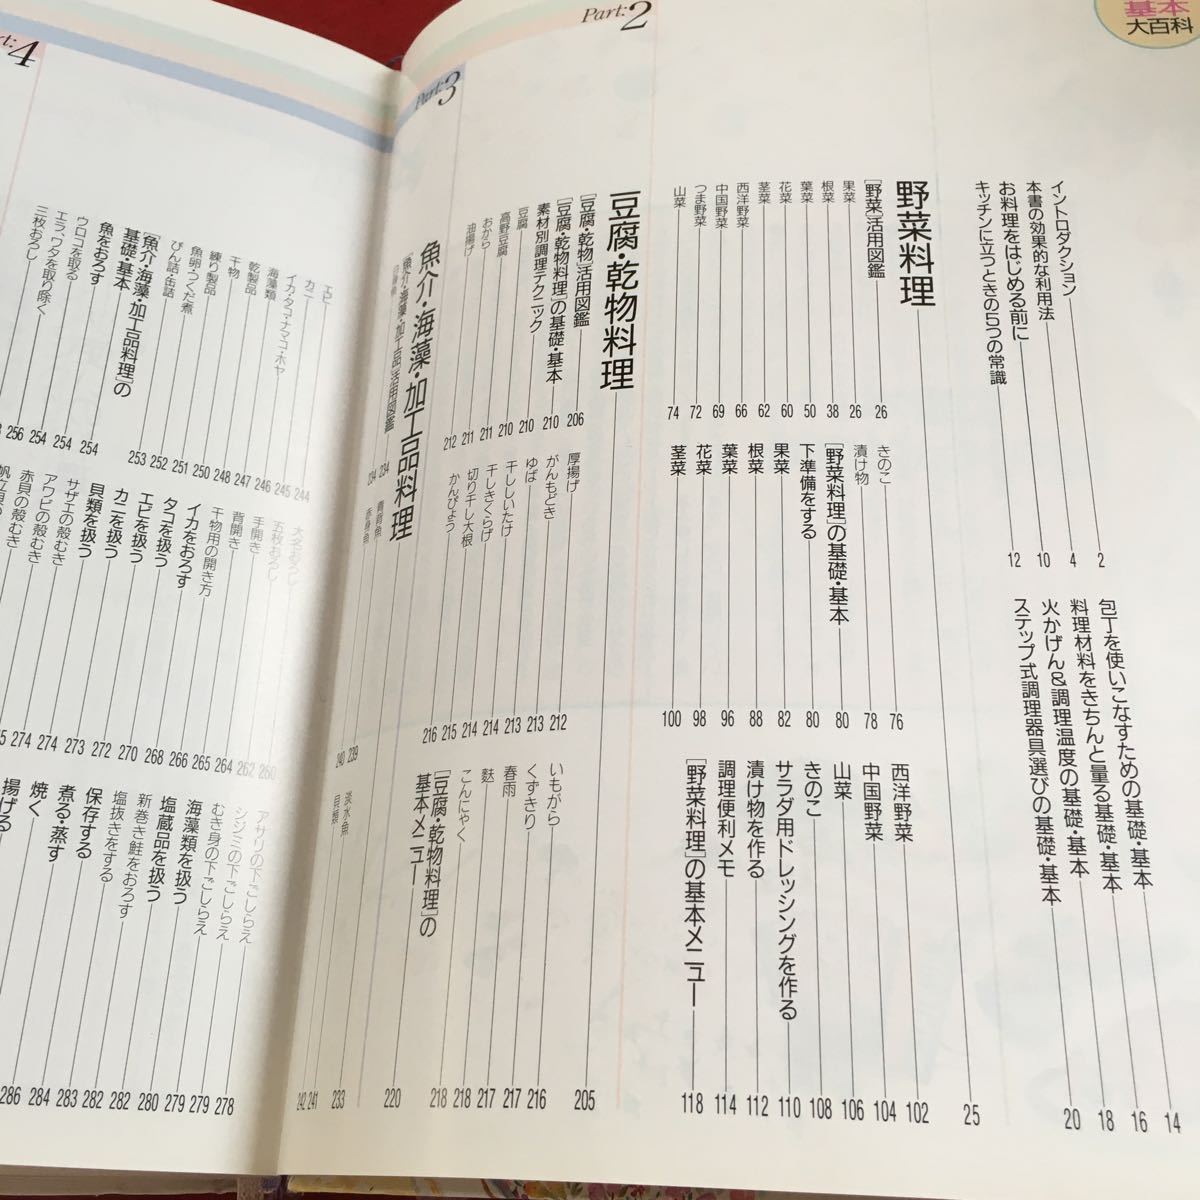 基本
大百科
イントロダクション 2
本書の効果的な利用法 4
お料理をはじめる前に 10
キッチンに立つときの5つの常識 12
包丁を使いこなすための基礎・基本 14
料理材料をきちんと量る基礎・基本 16
火かげん&調理温度の基礎・基本 18
ステップ式調理器具選びの基礎・基本 20
Part:2
野菜料理 25
[野菜]活用図鑑 26
果菜 26
根菜 38
葉菜 50
花菜 60
茎菜 62
西洋野菜 66
中国野菜 69
つま野菜 72
山菜 74
きのこ 76
漬け物 78
[野菜料理]の基礎・基本 80
下準備をする 80
果菜 82
根菜 88
葉菜 96
花菜 98
茎菜 100
西洋野菜 102
中国野菜 104
山菜 106
きのこ 108
サラダ用ドレッシングを作る 110
漬け物を作る 112
調理便利メモ 114
[野菜料理]の基本メニュー 118
Part:3
豆腐・乾物料理 205
[豆腐・乾物]活用図鑑 206
[豆腐・乾物料理]の基礎・基本 210
素材別調理テクニック 210
豆腐 210
高野豆腐 211
おから 211
油揚げ 212
厚揚げ 212
がんもどき 213
ゆば 213
干ししいたけ 214
干しきくらげ 214
切り干し大根 215
かんぴょう 216
いもがら 216
くずきり 217
春雨 217
麩 218
こんにゃく 218
[豆腐・乾物料理]の
基本メニュー 220
Part:4
魚介・海藻・加工品料理 233
魚介・海藻・加工品活用図鑑 234
234
青背魚 239
赤身魚 240
淡水魚 241
貝類 242
エビ 244
カニ 245
イカ・タコ・ナマコ・ホヤ 246
海藻類 247
乾製品 248
干物 250
練り製品 251
魚卵・つくだ煮 252
びん詰・缶詰 253
[魚介・海藻・加工品料理]の
基礎・基本 254
魚をおろす 254
ウロコを取る 254
エラ、ワタを取り除く 256
三枚おろし
大名おろし 260
五枚おろし 262
手開き 264
背開き 265
干物用の開き方 266
イカをおろす 268
タコを扱う 270
エビを扱う 272
カニを扱う 273
貝類を扱う 274
サザエの殻むき 274
アワビの殻むき
赤貝の殻むき
アサリの下ごしらえ 278
シジミの下ごしらえ 279
むき身の下ごしらえ 279
海藻類を扱う 280
塩蔵品を扱う 282
新巻き鮭をおろす 282
塩抜きをする 283
保存する 284
煮る・蒸す 286
焼く
揚げる